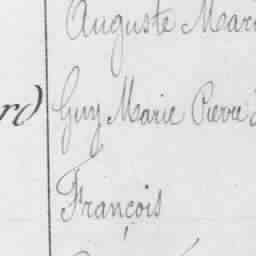 Auguste Mari
rd Guy Marie Pierre
François